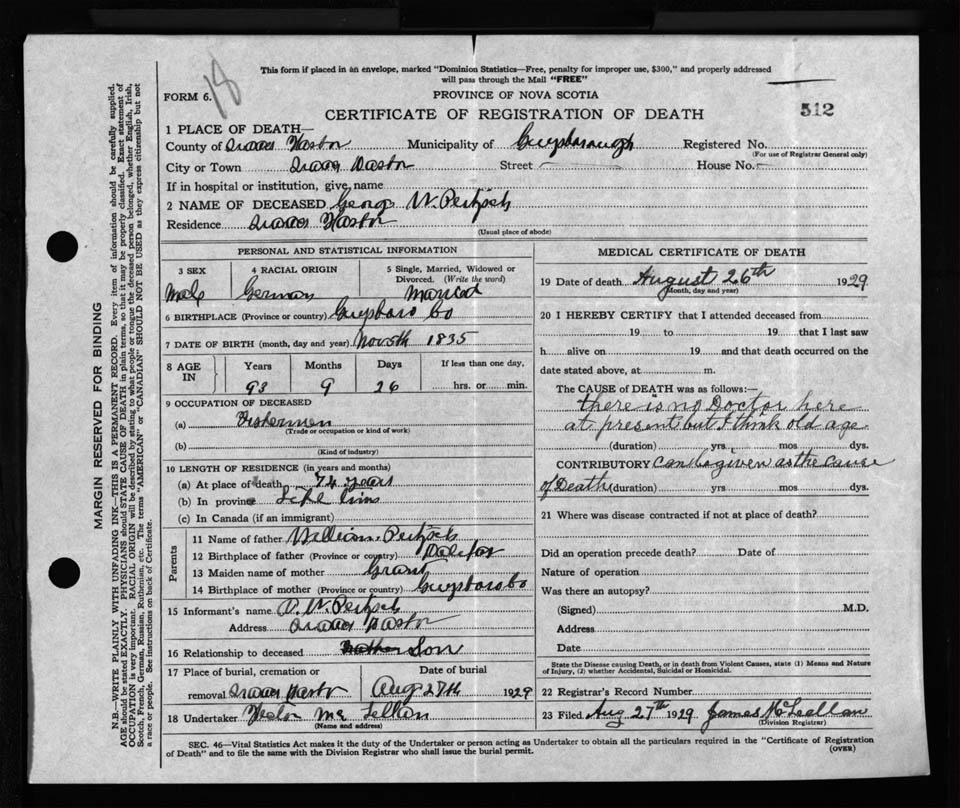 18
This form if placed in an envelope, marked "Dominion Statistics—Free, penalty for improper use, $300," and properly addressed
will pass through the Mail "FREE"
FORM 6.
PROVINCE OF NOVA SCOTIA
CERTIFICATE OF REGISTRATION OF DEATH
512
1 PLACE OF DEATH—
County of Harbor Municipality of Guysborough Registered No.
(For use of Registrar General only)
City or Town Harbor Street — House No. —
If in hospital or institution, give name
2 NAME OF DECEASED George W.
Residence Harbor
(Usual place of abode)
PERSONAL AND STATISTICAL INFORMATION
3 SEX
Male
4 RACIAL ORIGIN
German
5 Single, Married, Widowed or
Divorced. (Write the word)
Married
6 BIRTHPLACE (Province or country) Guysboro Co
7 DATE OF BIRTH (month, day and year) 1835
8 AGE
IN
Years Months Days If less than one day,
93 9 26 hrs. or min.
9 OCCUPATION OF DECEASED
(a) Fishermen
(Trade or occupation or kind of work)
(b)
(Kind of industry)
10 LENGTH OF RESIDENCE (in years and months)
(a) At place of death 74 years
(b) In province Life
(c) In Canada (if an immigrant)
Parents
11 Name of father William
12 Birthplace of father (Province or country) Halifax
13 Maiden name of mother Grant
14 Birthplace of mother (Province or country) Guysboro Co
15 Informant's name W.
Address Harbor
16 Relationship to deceased Son
17 Place of burial, cremation or Date of burial
removal Harbor Aug 27th 1929
18 Undertaker
(Name and address)
MEDICAL CERTIFICATE OF DEATH
19 Date of death August 26th 1929
(Month, day and year)
20 I HEREBY CERTIFY that I attended deceased from
19 to 19 that I last saw
h alive on 19 and that death occurred on the
date stated above, at m.
The CAUSE of DEATH was as follows:—
there is no Doctor here
at present but I think old age
(duration) yrs mos dys.
CONTRIBUTORY can be given as the cause
of Death (duration) yrs mos dys.
21 Where was disease contracted if not at place of death?
Did an operation precede death? Date of
Nature of operation
Was there an autopsy?
(Signed) M.D.
Address
Date
State the Disease causing Death, or in death from Violent Causes, state (1) Means and Nature
of Injury, (2) whether Accidental, Suicidal or Homicidal.
22 Registrar's Record Number
23 Filed Aug 27th 1929 James McLellan
(Division Registrar)
SEC. 46—Vital Statistics Act makes it the duty of the Undertaker or person acting as Undertaker to obtain all the particulars required in the "Certificate of Registration
of Death" and to file the same with the Division Registrar who shall issue the burial permit.
(OVER)
MARGIN RESERVED FOR BINDING
N.B.—WRITE PLAINLY WITH UNFADING INK—THIS IS A PERMANENT RECORD. Every item of information should be carefully supplied.
AGE should be stated EXACTLY. PHYSICIANS should STATE CAUSE OF DEATH in plain terms, so that it may be properly classified. Exact statement of
OCCUPATION is very important. RACIAL ORIGIN will be described by stating to what people or tongue the deceased person belonged, whether English, Irish,
Scotch, French, German, Russian, Ruthenian, etc. The terms "AMERICAN" or "CANADIAN" SHOULD NOT BE USED as they express citizenship but not
a race or people. See instructions on back of Certificate.